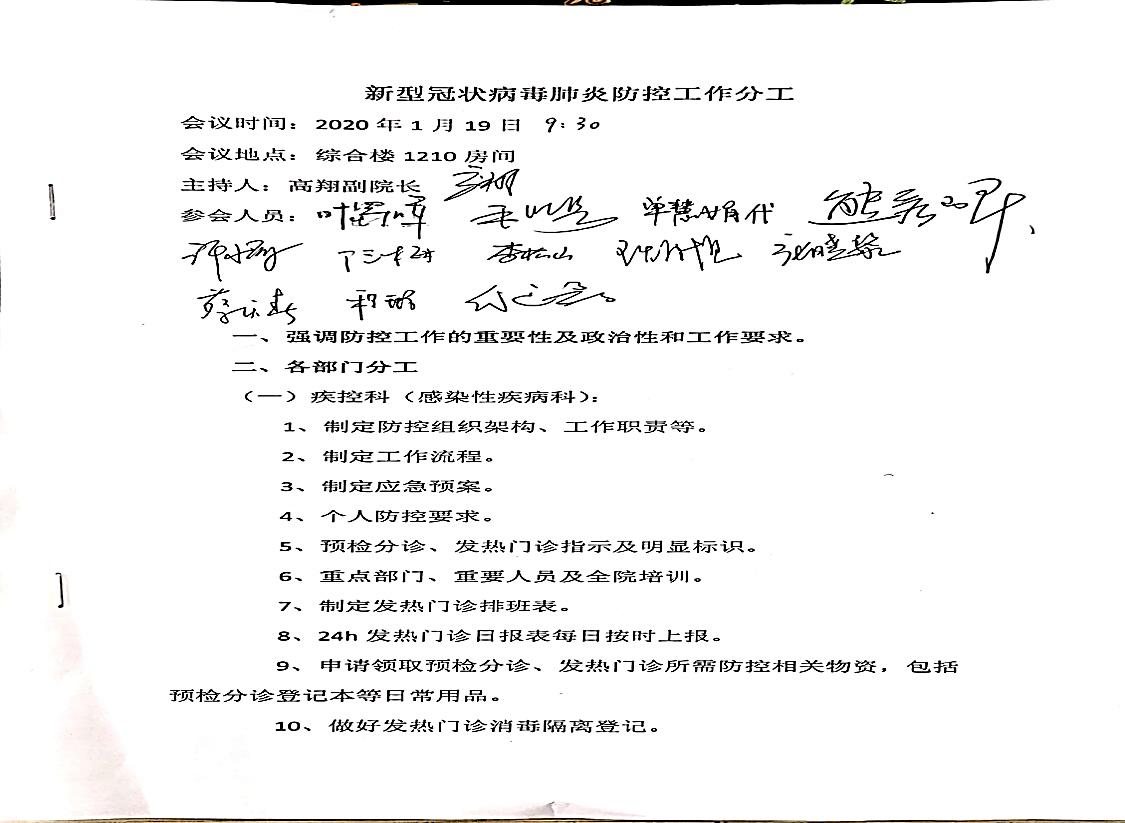 新型冠状病毒肺炎防控工作分工
会议时间：2020 年 1 月 19 日 9:30
会议地点：综合楼 1210 房间
主持人：高翔副院长 高翔
参会人员：
李松山
一、强调防控工作的重要性及政治性和工作要求。
二、各部门分工
（一）疾控科（感染性疾病科）：
1、制定防控组织架构、工作职责等。
2、制定工作流程。
3、制定应急预案。
4、个人防控要求。
5、预检分诊、发热门诊指示及明显标识。
6、重点部门、重要人员及全院培训。
7、制定发热门诊排班表。
8、24h 发热门诊日报表每日按时上报。
9、申请领取预检分诊、发热门诊所需防控相关物资，包括
预检分诊登记本等日常用品。
10、做好发热门诊消毒隔离登记。